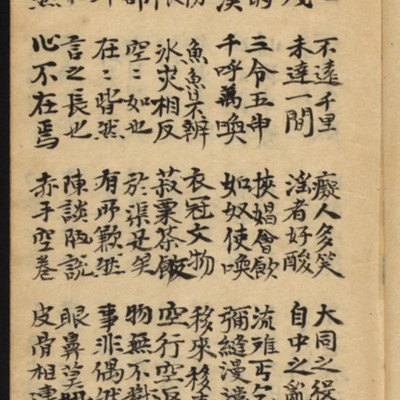 不遠千里 癡人多笑 大同之役
未達一間 淫者好酸 自中之亂
三令五申 挾娼會飮 流 丐乞
千呼萬喚 如奴使喚 彌縫漫
魚魯不辨 衣冠文物 移來移
氷炭相反 菽粟茶飯 空行空返
空〻如也 於渠足矣 物無不
在〻皆然 有所歉然 事非偶然
言之長也 陳談陋說 眼鼻莫
心不在焉 赤手空卷 皮骨相連